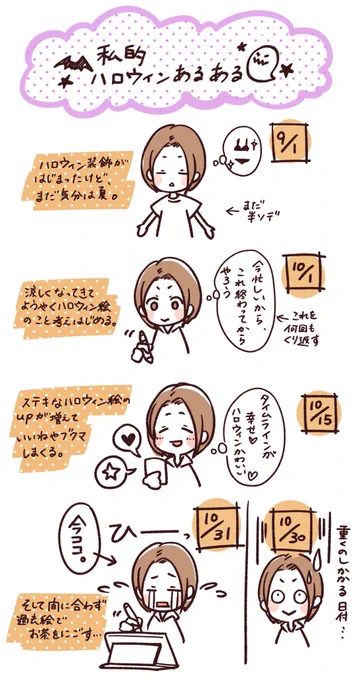 私的
ハロウィンあるある
9/1
ハロウィン装飾が
はじまったけど、
まだ気分は夏。
← まだ
半ソデ
10/1
涼しくなってきて
ようやくハロウィン絵
のこと考えはじめる。
今忙しいから、
これ終わってから
やろう
← これを
何回も
くり返す
10/15
ステキなハロウィン絵の
upが増えて
いいねやブクマ
しまくる。
タイムラインが
幸せ♡
ハロウィンかわいい♡
10/30
重くのしかかる日付…
10/31
ひーっ
今ココ。
そして間に合わず
過去絵で
お茶をにごす…